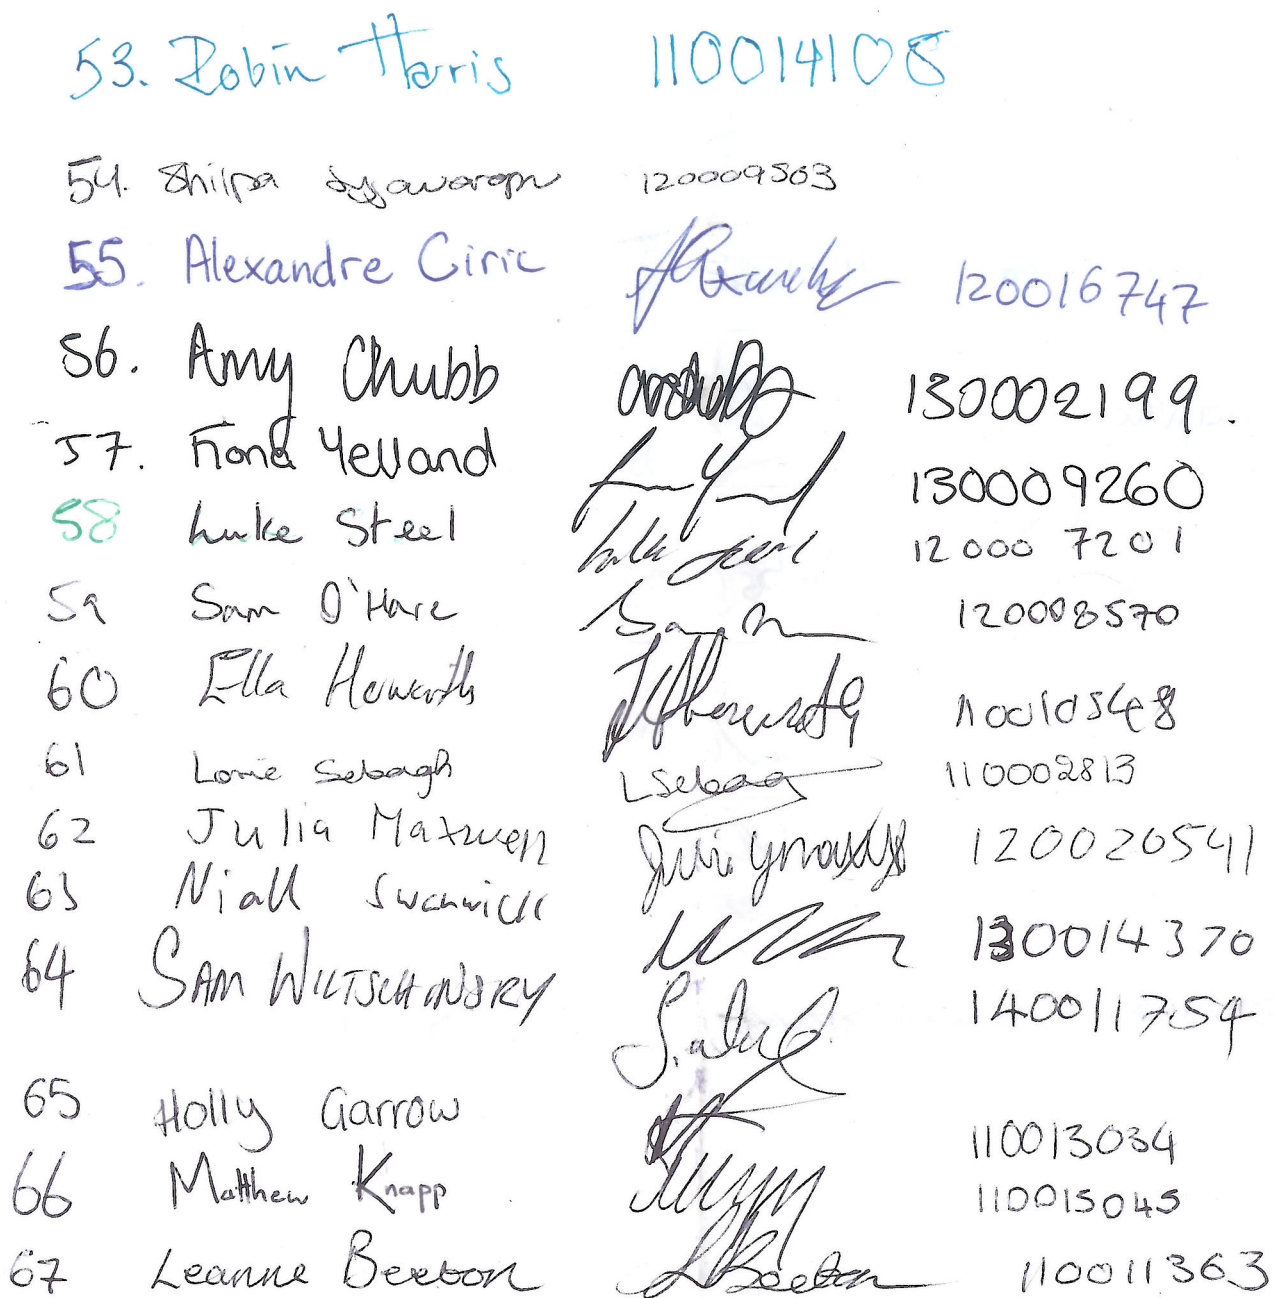 53. Robin Harris 110014108
54. Shilpa 120009503
55. Alexandre Ciric 120016747
56. Amy Chubb 130002199.
57. Fiona Yelland 130009260
58 Luke Steel 12000 7201
59 Sam O'Hare 120008570
60 Ella Howarth
61 Lorrie Sebagh L Sebag 110002813
62 Julia Maxwell 120020541
63 Niall Swanwick 130014370
64 SAM 140011754
65 Holly Garrow 110013034
66 Matthew Knapp 110015045
67 Leanne Beeton L Beeton 110011363